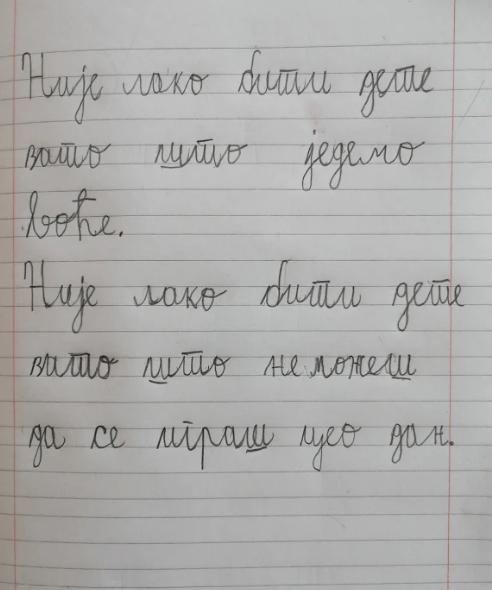 Није лако бити дете
зато што једемо
воће.
Није лако бити дете
зато што неможеш
да се играш цео дан.